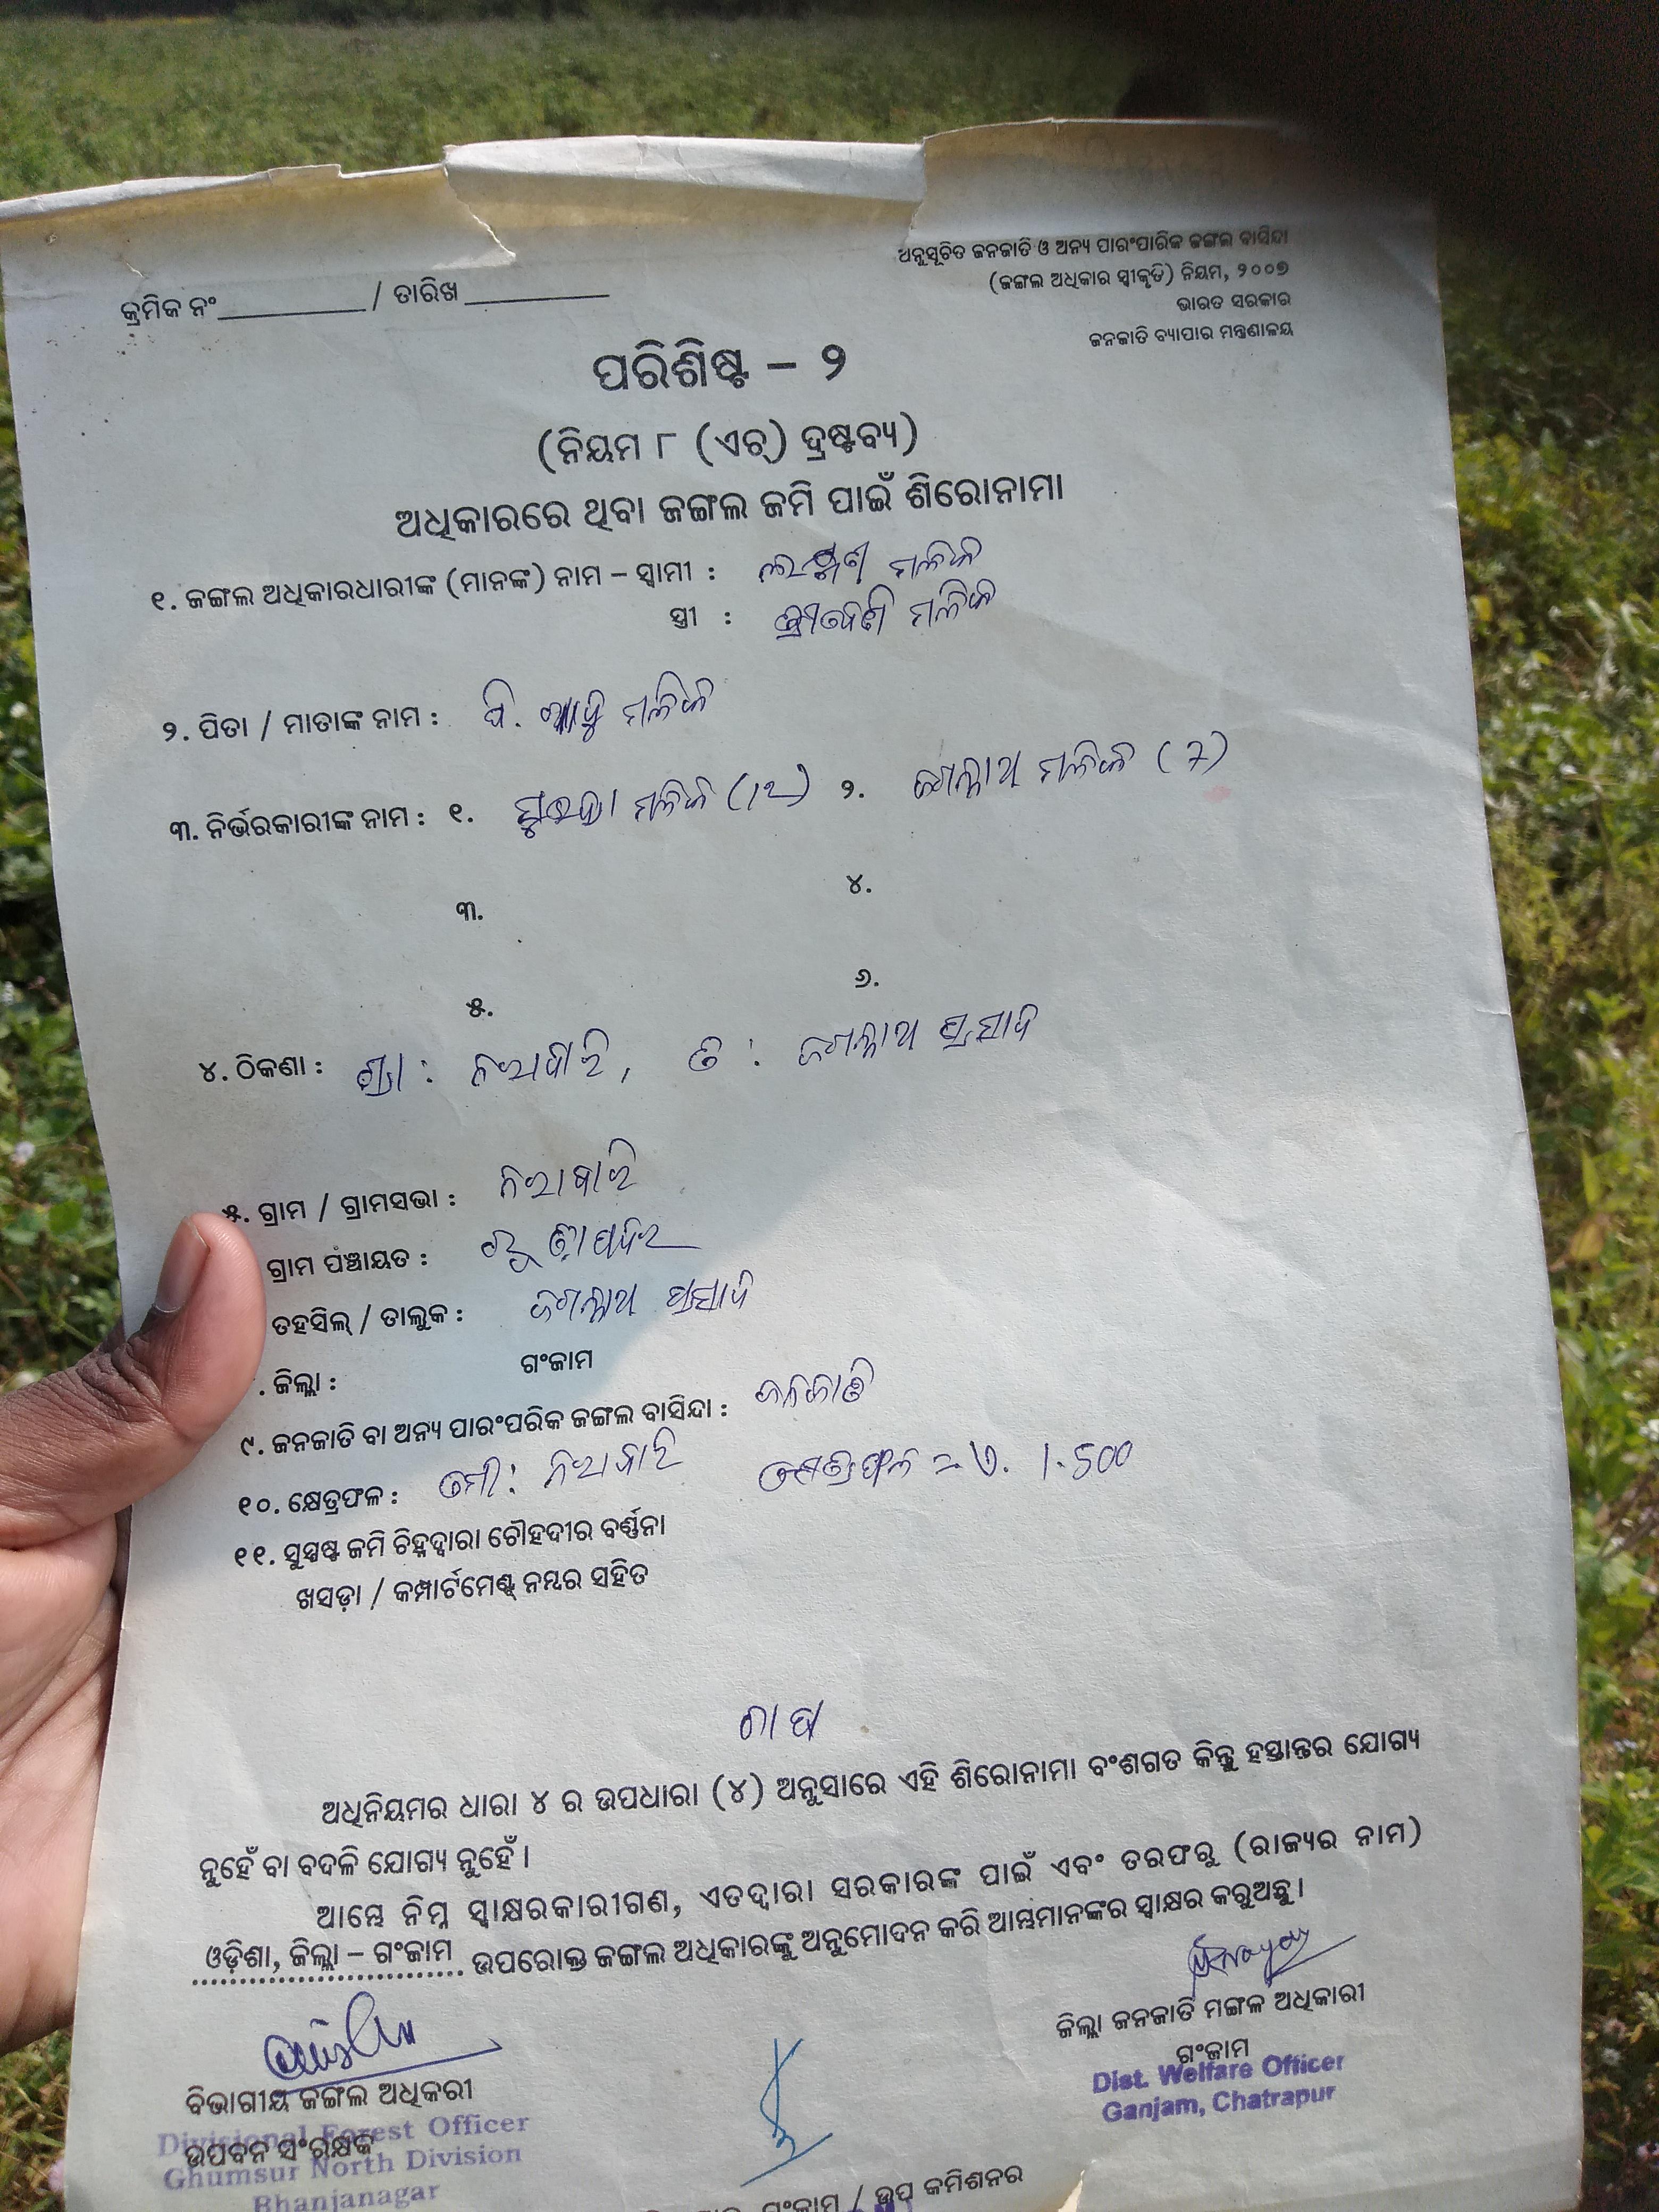 ଅନୁସୂଚିତ ଜନଜାତି ଓ ଅନ୍ୟ ପାରଂପାରିକ ଜଙ୍ଗଲ ବାସିନ୍ଦା
(ଜଙ୍ଗଲ ଅଧିକାର ସ୍ୱୀକୃତି) ନିୟମ, ୨୦୦୭
ଭାରତ ସରକାର
ଜନଜାତି ବ୍ୟାପାର ମନ୍ତ୍ରଣାଳୟ
କ୍ରମିକ ନଂ / ତାରିଖ
ପରିଶିଷ୍ଟ – ୨
(ନିୟମ ୮ (ଏଚ୍) ଦ୍ରଷ୍ଟବ୍ୟ)
ଅଧିକାରରେ ଥିବା ଜଙ୍ଗଲ ଜମି ପାଇଁ ଶିରୋନାମା
୧. ଜଙ୍ଗଲ ଅଧିକାରଧାରୀଙ୍କ (ମାନଙ୍କ) ନାମ – ସ୍ୱାମୀ : ଲକ୍ଷ୍ମଣ ମଲିକ
ସ୍ତ୍ରୀ : ମଲିକ
୨. ପିତା / ମାତାଙ୍କ ନାମ : ପି. ମଲିକ
୩. ନିର୍ଭରକାରୀଙ୍କ ନାମ : ୧. ମଲିକ (୧୨) ୨. ମଲିକ (7)
୩. ୪.
୫. ୬.
୪. ଠିକଣା : ଗ୍ରା : ନିଆଁବାରି, ତ : ଜଗନ୍ନାଥ ପ୍ରସାଦ
୫. ଗ୍ରାମ / ଗ୍ରାମସଭା :
ଗ୍ରାମ ପଞ୍ଚାୟତ :
ତହସିଲ୍ / ତାଲୁକ : ଜଗନ୍ନାଥ ପ୍ରସାଦ
. ଜିଲ୍ଲା : ଗଂଜାମ
୯. ଜନଜାତି ବା ଅନ୍ୟ ପାରଂପରିକ ଜଙ୍ଗଲ ବାସିନ୍ଦା : ଜନଜାତି
୧୦. କ୍ଷେତ୍ରଫଳ : ମୌ: କ୍ଷେତ୍ରଫଳ = ଏ. 1.500
୧୧. ସୁସ୍ପଷ୍ଟ ଜମି ଚିହ୍ନଦ୍ୱାରା ଚୌହଦୀର ବର୍ଣ୍ଣନା
ଖସଡ଼ା / କମ୍ପାର୍ଟମେଣ୍ଟ୍ ନମ୍ବର ସହିତ
ଅଧିନିୟମର ଧାରା ୪ ର ଉପଧାରା (୪) ଅନୁସାରେ ଏହି ଶିରୋନାମା ବଂଶଗତ କିନ୍ତୁ ହସ୍ତାନ୍ତର ଯୋଗ୍ୟ
ନୁହେଁ ବା ବଦଳି ଯୋଗ୍ୟ ନୁହେଁ ।
ଆମ୍ଭେ ନିମ୍ନ ସ୍ୱାକ୍ଷରକାରୀଗଣ, ଏତଦ୍ୱାରା ସରକାରଙ୍କ ପାଇଁ ଏବଂ ତରଫରୁ (ରାଜ୍ୟର ନାମ)
ଓଡ଼ିଶା, ଜିଲ୍ଲା – ଗଂଜାମ ଉପରୋକ୍ତ ଜଙ୍ଗଲ ଅଧିକାରଙ୍କୁ ଅନୁମୋଦନ କରି ଆମ୍ଭମାନଙ୍କର ସ୍ୱାକ୍ଷର କରୁଅଛୁ ।
ଜିଲ୍ଲା ଜନଜାତି ମଙ୍ଗଳ ଅଧିକାରୀ
ଗଂଜାମ
Dist. Welfare Officer
Ganjam, Chatrapur
ବିଭାଗୀୟ ଜଙ୍ଗଲ ଅଧିକରୀ
Divisional Forest Officer
ଉପବନ ସଂରକ୍ଷକ
Ghumsur North Division
Bhanjanagar
ଗଂଜାମ / ଉପ କମିଶନର